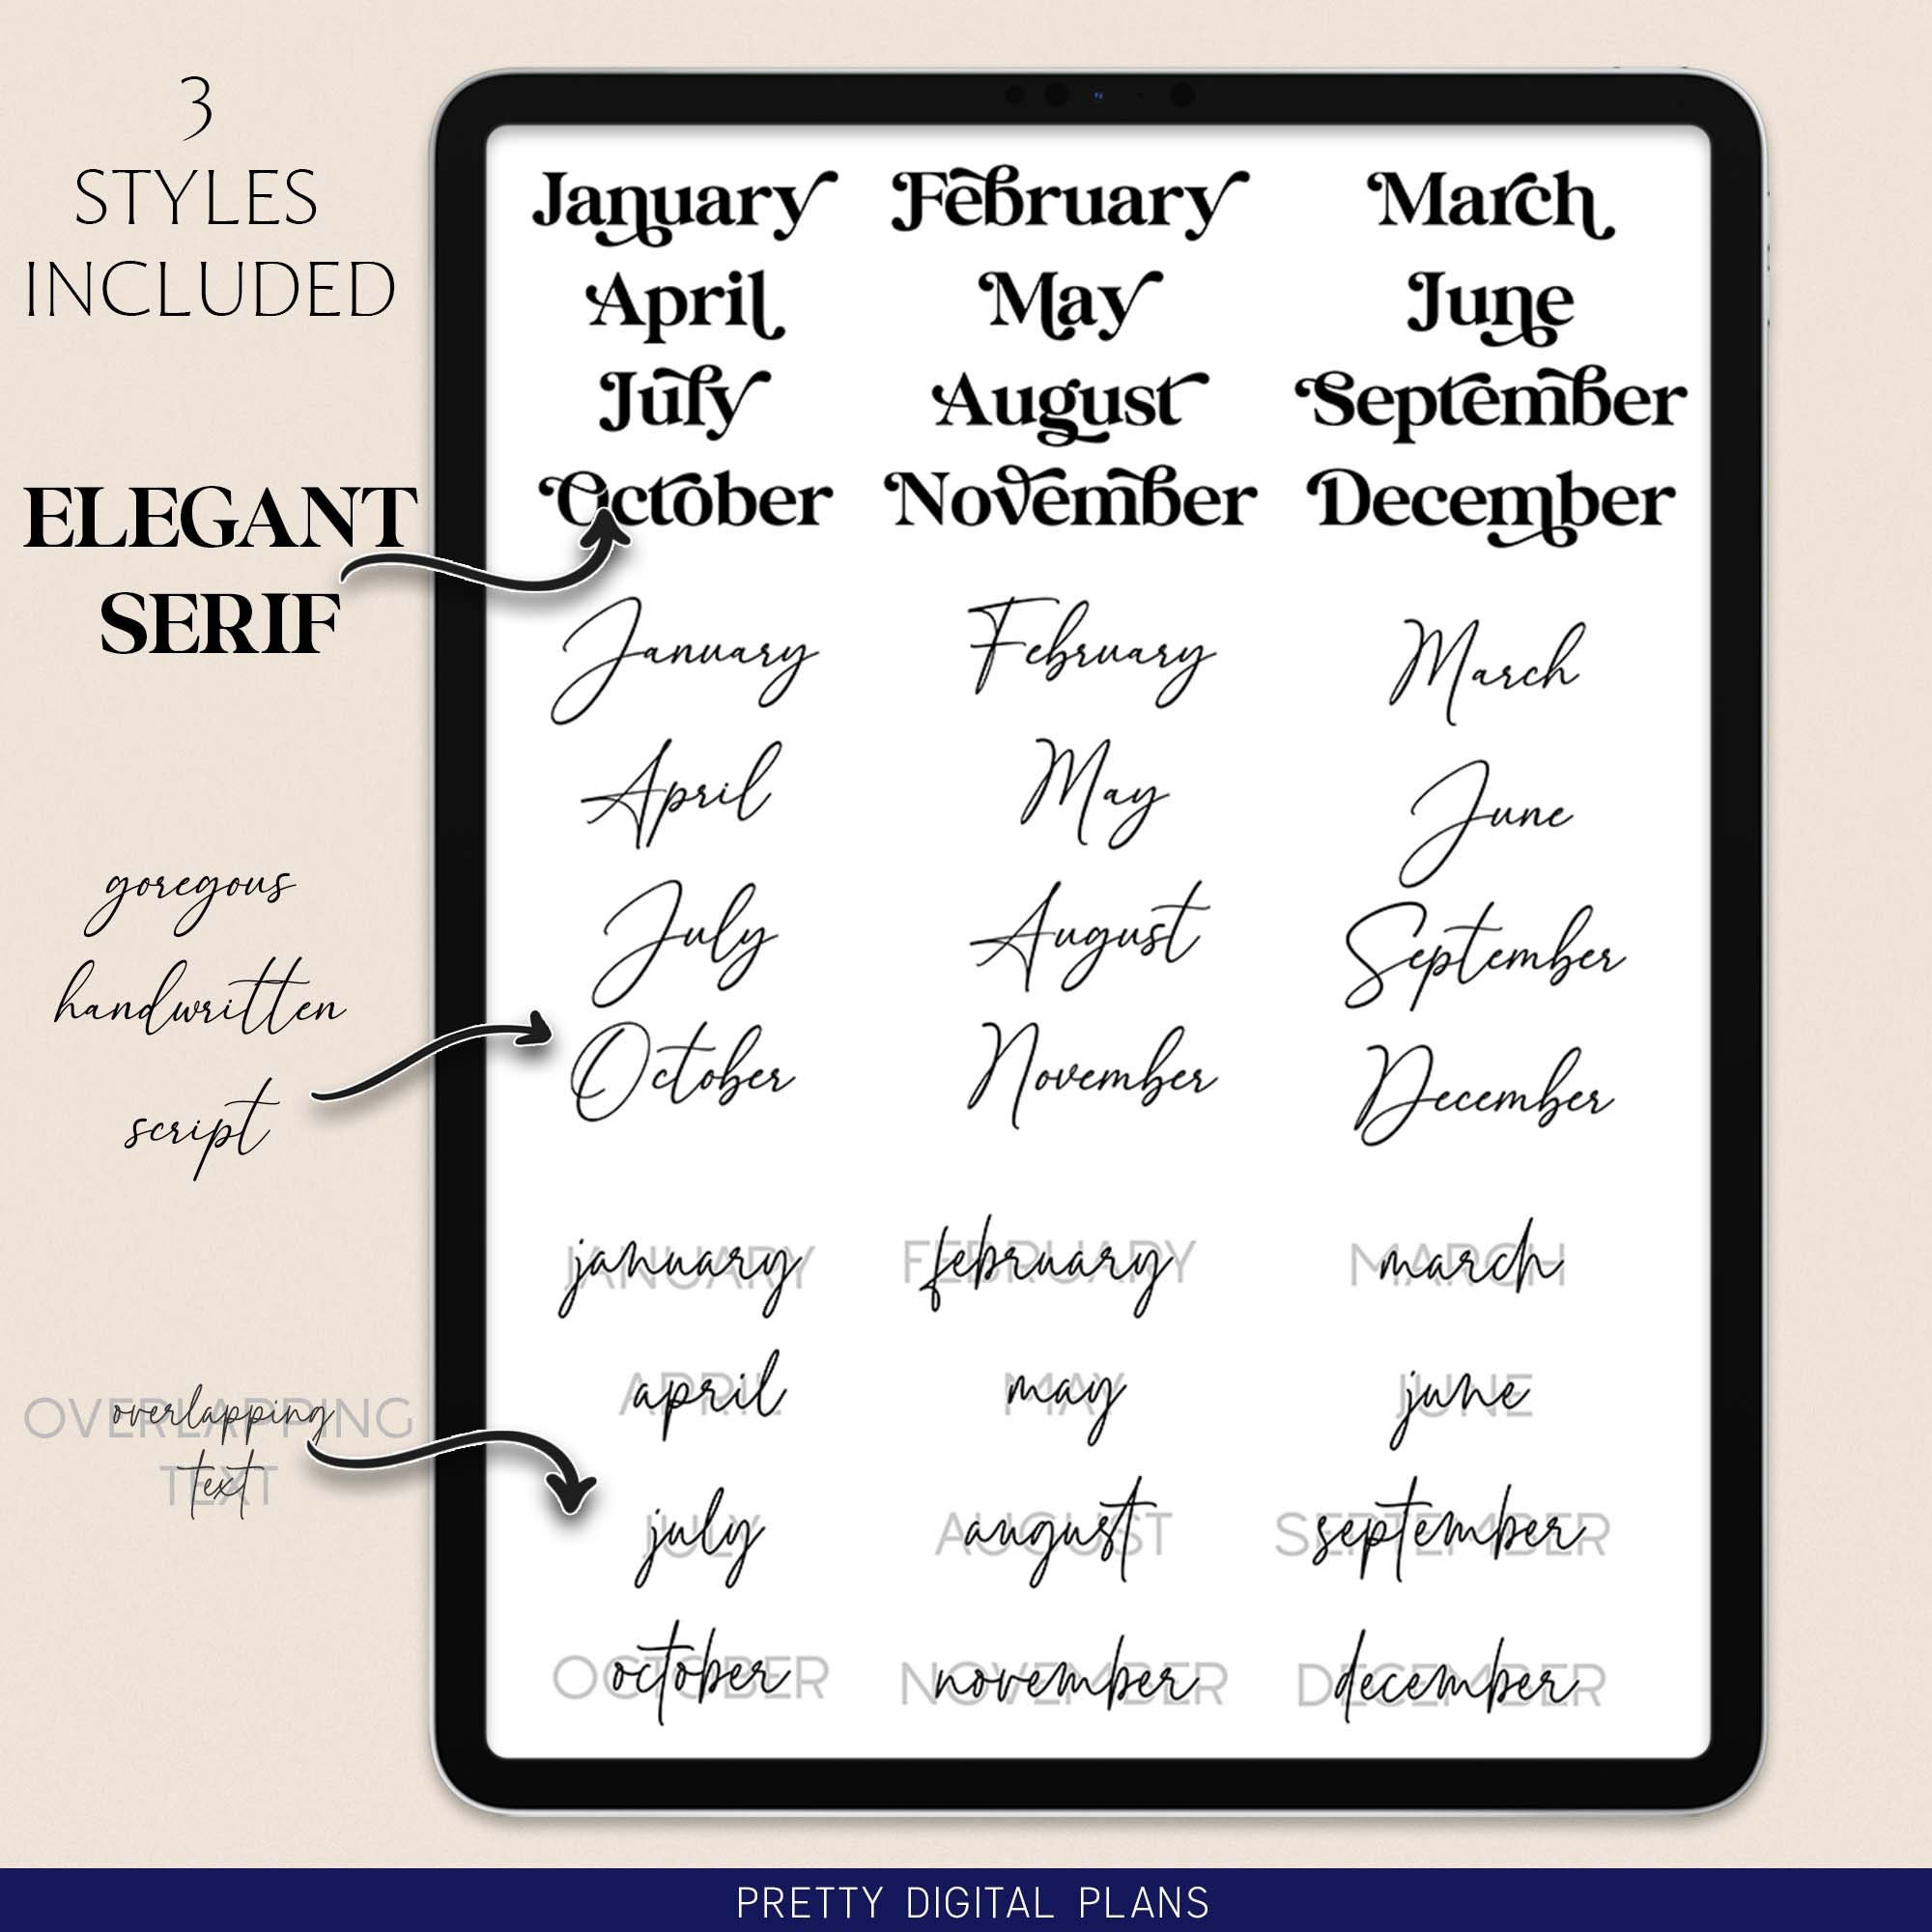 3
STYLES
INCLUDED
ELEGANT
SERIF
goregous
handwritten
script
OVERLAPPING overlapping
TEXT text
January February March
April May June
July August September
October November December
January February March
April May June
July August September
October November December
JANUARY january FEBRUARY february MARCH march
APRIL april MAY may JUNE june
JULY july AUGUST august SEPTEMBER september
OCTOBER october NOVEMBER november DECEMBER december
PRETTY DIGITAL PLANS